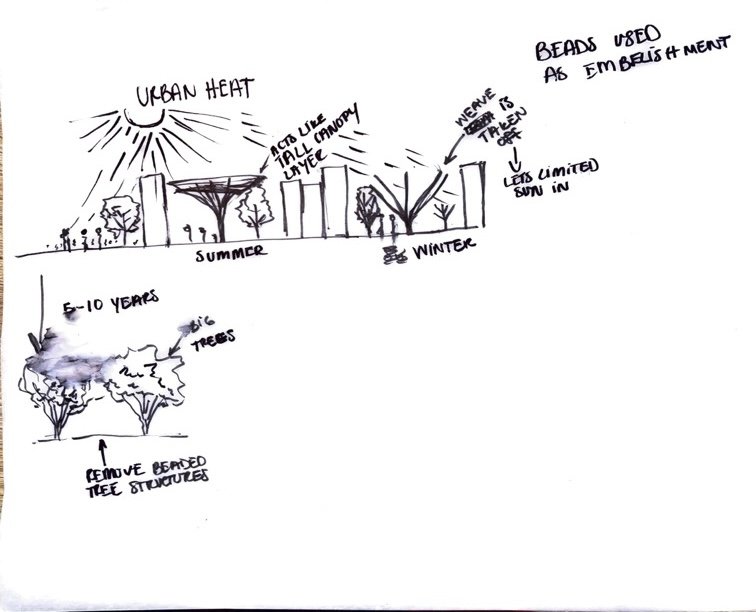 BEADS USED
AS EMBELISHMENT
URBAN HEAT
ACTS LIKE
TALL CANOPY
LAYER
WEAVE
IS
TAKEN
OFF
LETS LIMITED
SUN IN
SUMMER
WINTER
5-10 YEARS
BIG
TREES
REMOVE BEADED
TREE STRUCTURES